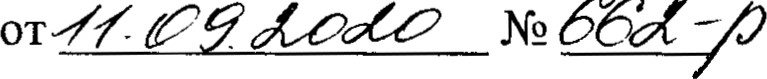 от 11.09.2020 № 662-р